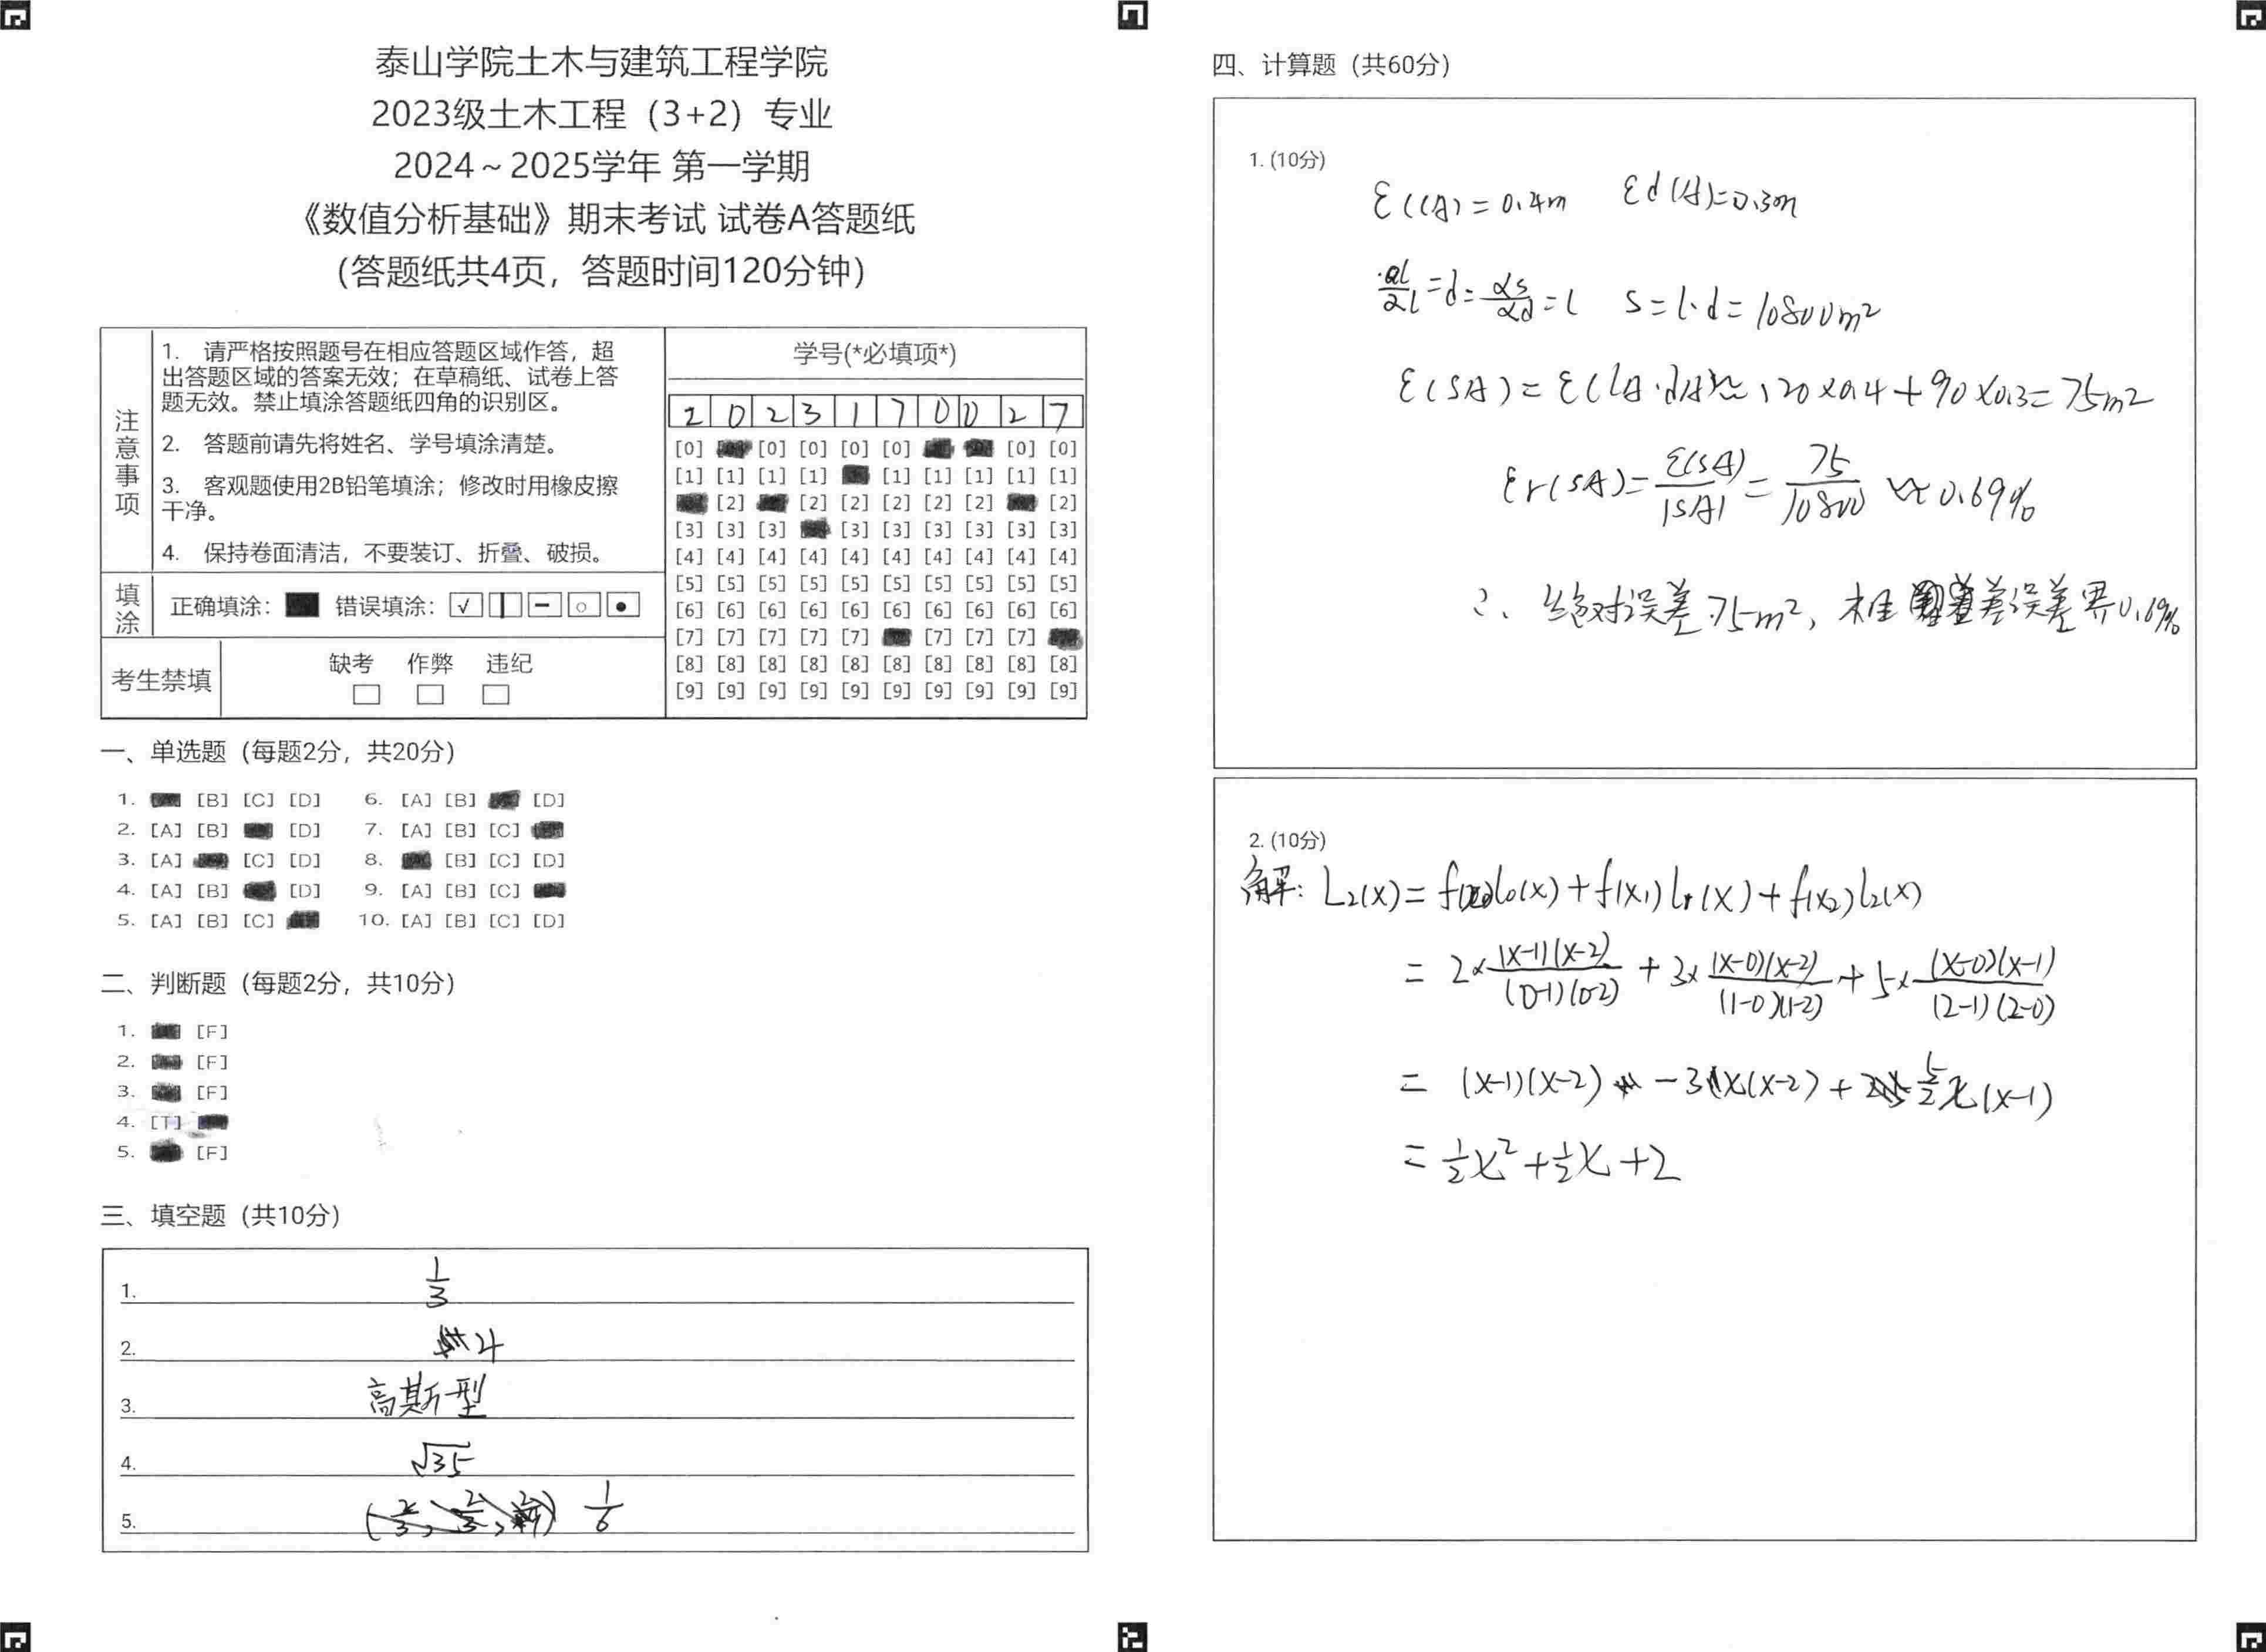 泰山学院土木与建筑工程学院
2023级土木工程（3+2）专业
2024～2025学年 第一学期
《数值分析基础》期末考试 试卷A答题纸
（答题纸共4页，答题时间120分钟）
注意事项
1. 请严格按照题号在相应答题区域作答，超
出答题区域的答案无效；在草稿纸、试卷上答
题无效。禁止填涂答题纸四角的识别区。
2. 答题前请先将姓名、学号填涂清楚。
3. 客观题使用2B铅笔填涂；修改时用橡皮擦
干净。
4. 保持卷面清洁，不要装订、折叠、破损。
填涂
正确填涂： 错误填涂：
考生禁填
缺考 作弊 违纪
学号(*必填项*)
2 0 2 3 1 7 0 0 2 7
[0] [0] [0] [0] [0] [0] [0]
[1] [1] [1] [1] [1] [1] [1] [1] [1]
[2] [2] [2] [2] [2] [2] [2]
[3] [3] [3] [3] [3] [3] [3] [3] [3]
[4] [4] [4] [4] [4] [4] [4] [4] [4] [4]
[5] [5] [5] [5] [5] [5] [5] [5] [5] [5]
[6] [6] [6] [6] [6] [6] [6] [6] [6] [6]
[7] [7] [7] [7] [7] [7] [7] [7]
[8] [8] [8] [8] [8] [8] [8] [8] [8] [8]
[9] [9] [9] [9] [9] [9] [9] [9] [9] [9]
一、单选题（每题2分，共20分）
1. [B] [C] [D] 6. [A] [B] [D]
2. [A] [B] [D] 7. [A] [B] [C]
3. [A] [C] [D] 8. [B] [C] [D]
4. [A] [B] [D] 9. [A] [B] [C]
5. [A] [B] [C] 10. [A] [B] [C] [D]
二、判断题（每题2分，共10分）
1. [F]
2. [F]
3. [F]
4. [T]
5. [F]
三、填空题（共10分）
1. 1/3
2. 4
3. 高斯型
4. √35
5. 1/6
四、计算题（共60分）
1. (10分)
ε(lA)=0.4m εd(A)=0.3m
=d= αs/αd =l s=l·d=10800m²
ε(SA)=ε(lA·dA)≈120×0.4+90×0.3=75m²
εr(SA)=ε(SA)/|SA|=75/10800≈0.69%
∴ 绝对误差75m²，相差误差界0.69%
2. (10分)
解：L₂(x)=f(x₀)l₀(x)+f(x₁)l₁(x)+f(x₂)l₂(x)
=2×(x-1)(x-2)/(0-1)(0-2)+3×(x-0)(x-2)/(1-0)(1-2)+5×(x-0)(x-1)/(2-1)(2-0)
=(x-1)(x-2)-3x(x-2)+5/2x(x-1)
=1/2x²+1/2x+2